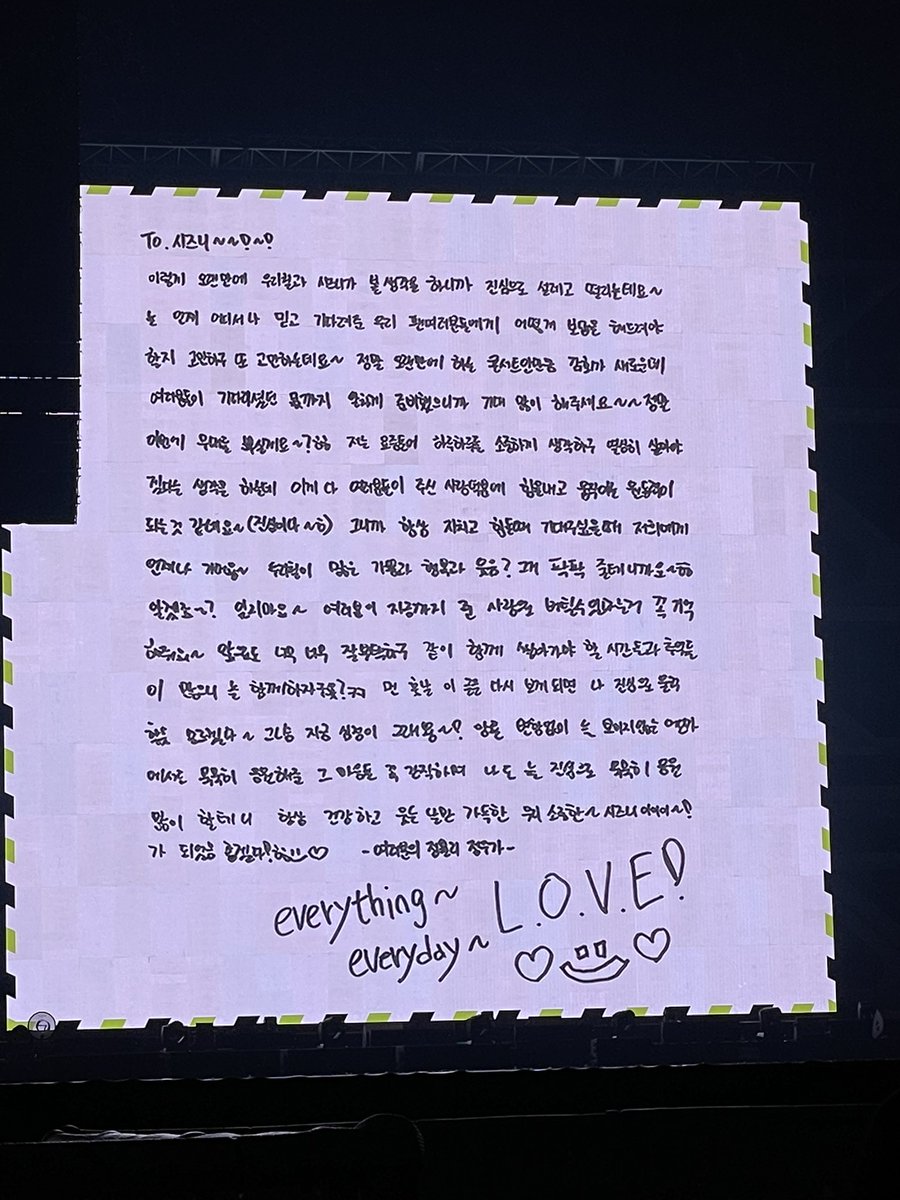 To. 시즈니~~!~!
이렇게 오랜만에 우리칠과 시즈니가 볼 생각을 하니까 진심으로 설레고 떨리는데요~
늘 언제 어디서나 믿고 기다려준 우리 팬여러분들에게 어떻게 보답을 해드려야
할지 고민하구 또 고민하는데요~ 정말 오랜만에 하는 콘서트인만큼 감회가 새로운데
여러분들이 기다리셨던 몫까지 준비했으니까 기대 많이 해주세요~~ 정말
저는 요즘들어 하루하루를 소중하게 생각하구 열심히 살아야
겠다는 생각을 하는데 이게 다 여러분들이 주신 사랑덕분에 힘을내고 움직이는 원동력이
되는것 같네요~ (진심이다~!) 그니까 항상 지치고 힘들때 기대구싶을때 저희에게
언제나 많은 기쁨과 행복과 웃음? 그거 팍팍 줄테니까요~
알겠죠~? 잊지마요~ 여러분이 지금까지 준 사랑으로 버틸수있다는거 꼭 기억
해줘요~ 앞으로도 너무 너무 잘부탁하구 같이 함께 쌓아가야 할 시간들과 추억들
이 많으니 늘 함께하자구욧? ㅋㅋ 먼 훗날 이 글을 다시 보게 되면 나 진심으로 울컥
할듯 모르겠다~ 지금 심정이 그래용~! 앞으로 변함없이 늘 보이지않는 연가
에서도 묵묵히 응원해줄 그 마음들 꼭 간직하며 나도 늘 진심으로 묵묵히 응원
많이 할테니 항상 건강하고 웃는 날만 가득한 소중한~ 시즈니 이이이~!
가 되었음 좋겠다! ♡ -여러분의 정우가-
everything~ L.O.V.E!
everyday~ ♡ ♡